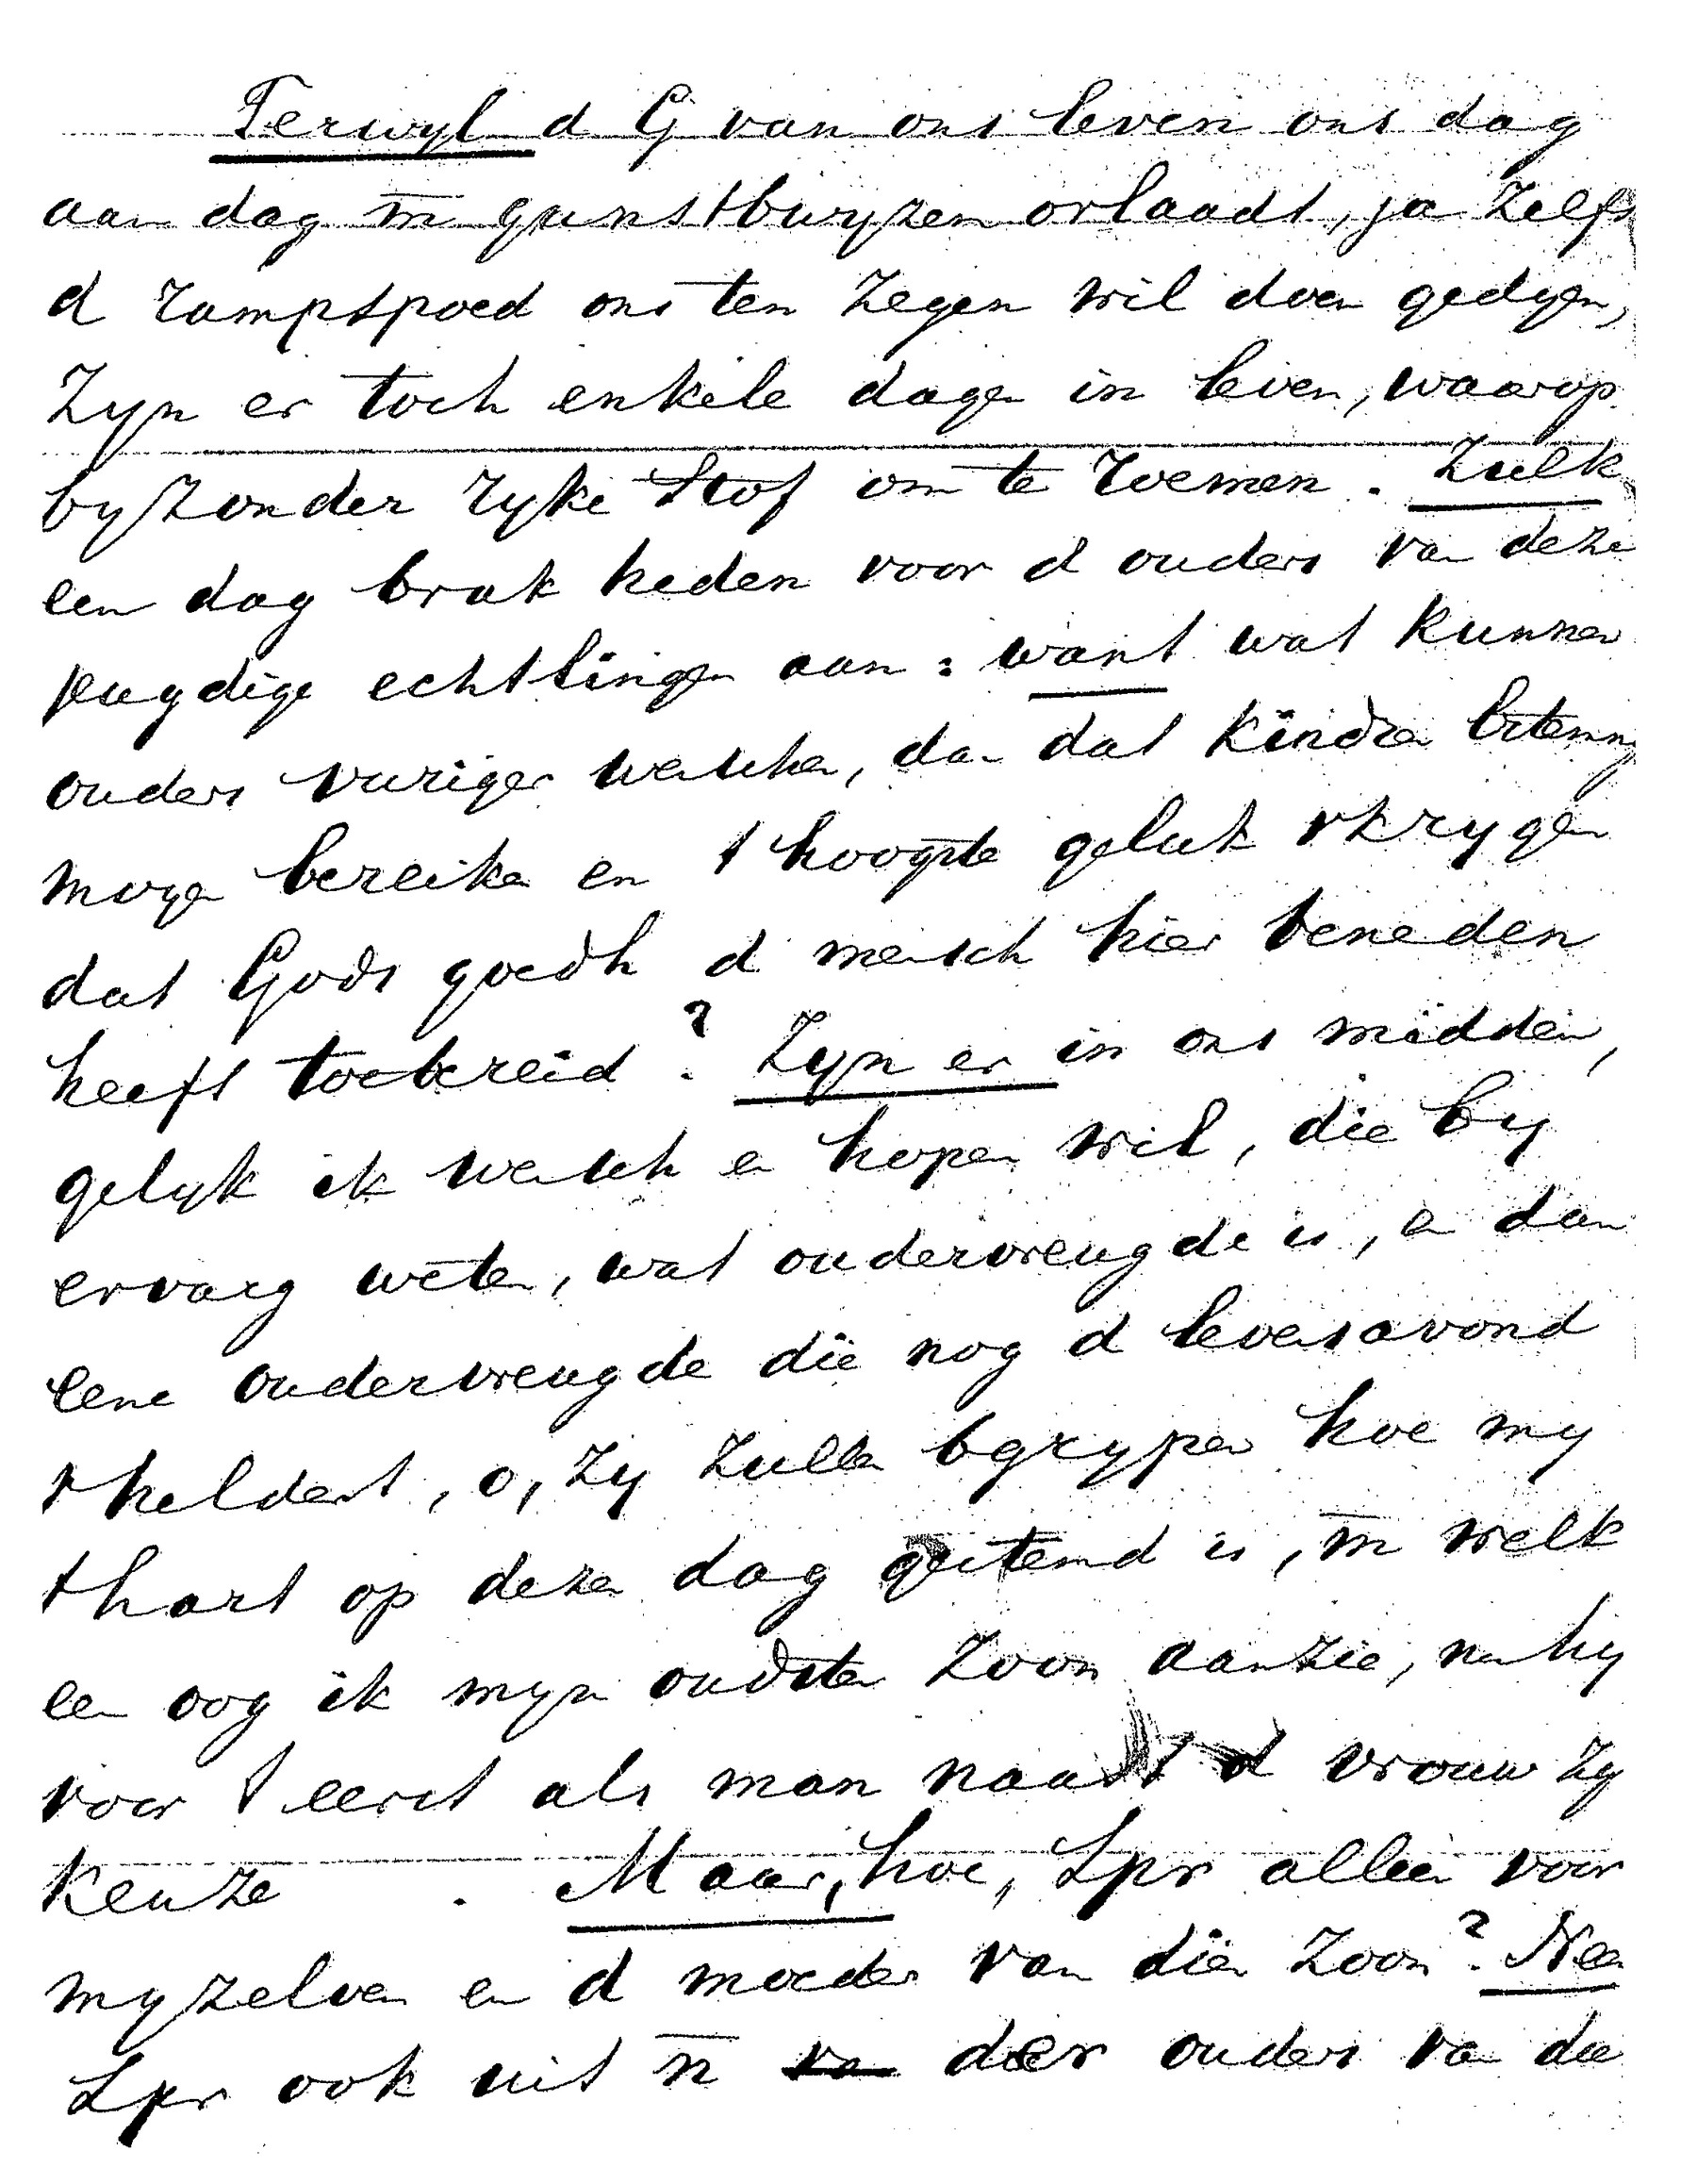 Terwyl d G van ons leven ons dag
aan dag m̅ gunstbwyzen orlaadt, ja zelfs
d rampspoed ons ten zegen wil doen gedyen,
Zyn er toch enkele dagen in leven, waarop
byzonder ryke Stof om te roemen. Zulk
een dag brak heden voor d ouders van deze
jeugdige echtlingen aan: want wat kunnen
ouders vuriger wenschen, dan dat kindren
mogen bereiken en t hoogste geluk vkrygen
dat Gods goedh d mensch hier beneden
heeft toebereid? Zyn er in ons midden,
gelyk ik wensch en hopen wil, die by
ervarg weten, wat oudervreugde is, en dan
eene oudervreugde die nog d levensavond
vheldert, o, zy zullen bgrypen hoe my
t hart op dezen dag gestemd is, m̅ welk
een oog ik myn oudsten zoon aanzie, nu hy
voor t eerst als man naast d vrouw zyn
keuze . Maar, hoe, Spr alleen voor
myzelven en d moeder van dien zoon? Neen
Spr ook uit n̅ der ouders van die